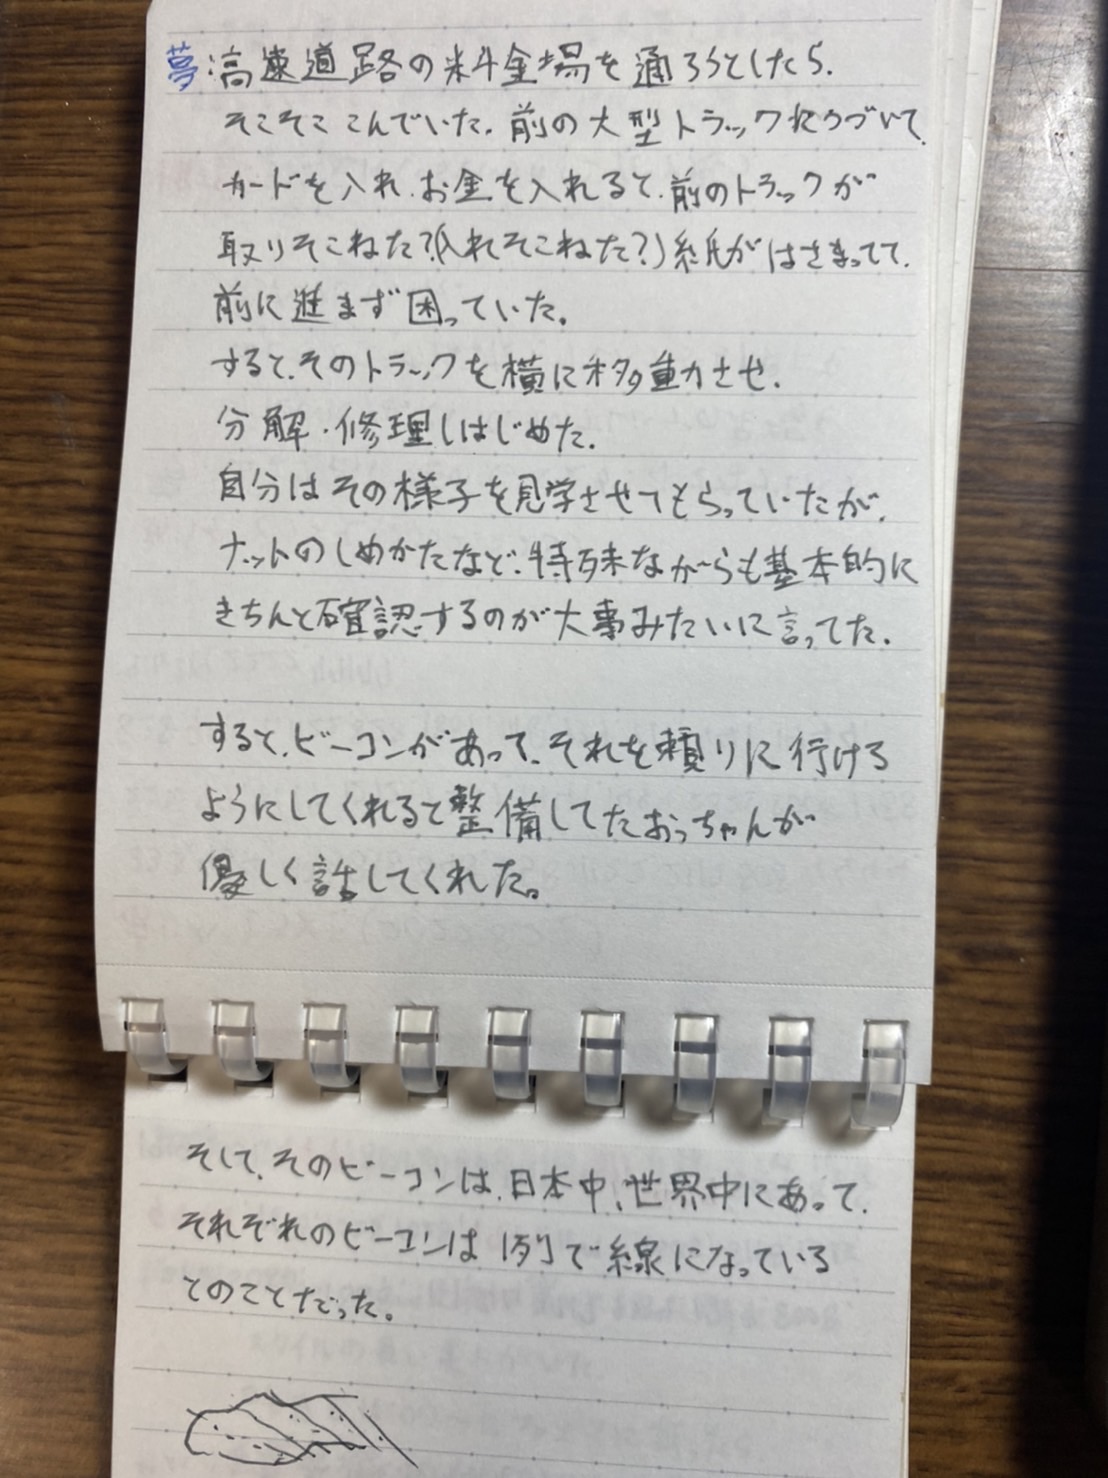 夢:高速道路の料金場を通ろうとしたら、
そこそここんでいた。前の大型トラックにつづいて、
カードを入れ、お金を入れると、前のトラックが
取りそこねた?(入れそこねた?)紙がはさまってて、
前に進まず困っていた。
すると、そのトラックを横に移動させ、
分解・修理しはじめた。
自分はその様子を見学させてもらっていたが、
ナットのしめかたなど、特殊ながらも基本的に
きちんと確認するのが大事みたいに言ってた。
すると、ビーコンがあって、それを頼りに行ける
ようにしてくれると整備してたおっちゃんが
優しく話してくれた。
そして、そのビーコンは、日本中、世界中にあって、
それぞれのビーコンは1列で線になっている
とのことだった。